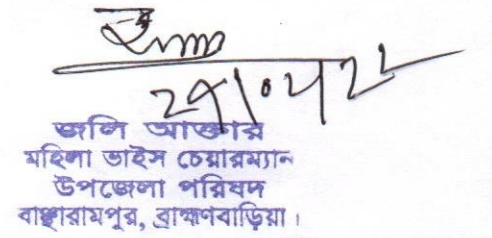 জলি আক্তার
মহিলা ভাইস চেয়ারম্যান
উপজেলা পরিষদ
বাঞ্ছারামপুর, ব্রাহ্মণবাড়িয়া।